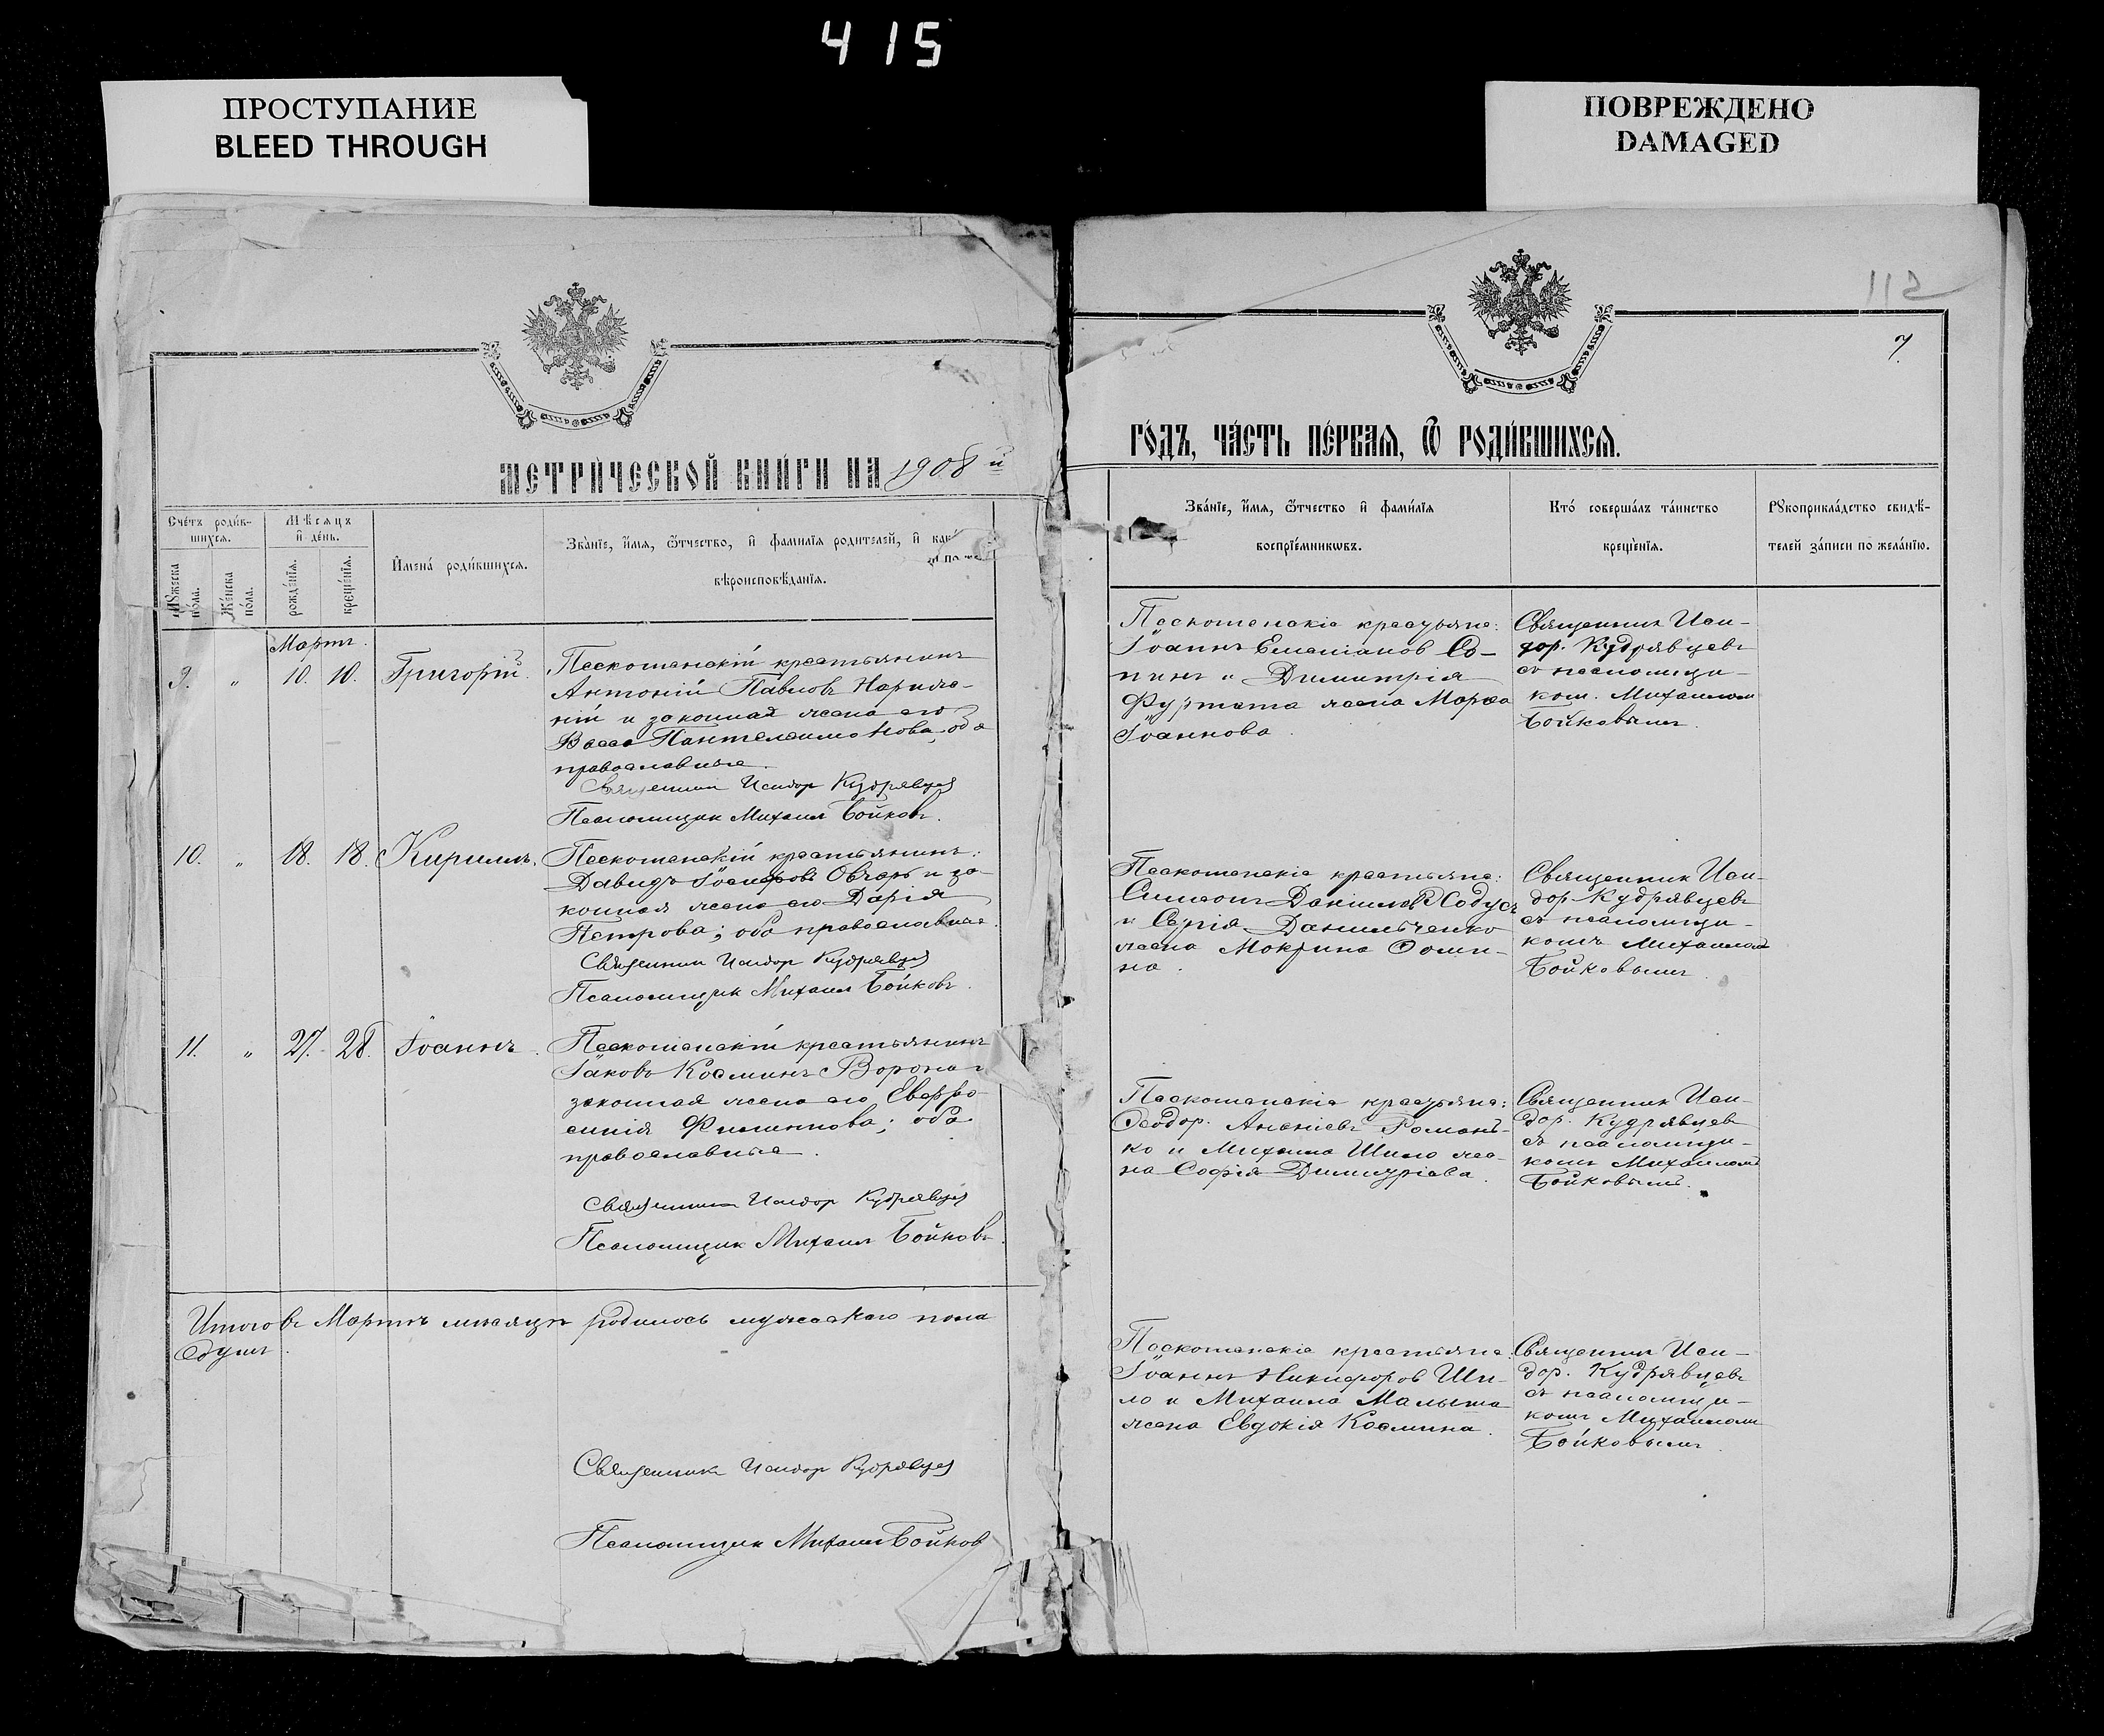 415
ПРОСТУПАНИЕ
BLEED THROUGH
ПОВРЕЖДЕНО
DAMAGED
112
7
МЕТРИ́ЧЕСКОЙ КНИ́ГИ НА 1908 й
ГО́ДЪ, ЧА́СТЬ ПЕ́РВАЯ, Ѿ РОДИ́ВШИХСЯ.
Сче́тъ роди́в-
шихся.
Мѣ́сяцъ
и́ де́нь.
Мꙋ́жеска
по́ла.
Же́нска
по́ла.
рожде́нїя.
креще́нїя.
И҆мена́ роди́вшихся.
Зва́нїе, и҆́мя, ѻ҆́тчество, и҆ фами́лїя роди́телей, и҆
вѣроисповѣ́данїя.
Зва́нїе, и҆́мя, ѻ҆́тчество и҆ фами́лїя
воспрїе́мникѡвъ.
Кто́ соверша́лъ та́инство
креще́нїя.
Рꙋкоприкла́дство свидѣ́-
телей за́писи по жела́нїю.
Мартъ.
9. " 10. 10. Григорій.
Пескошанскій крестьянинъ
Антоній Павловъ
ній и законная жена его
Васса Пантелеимонова, оба
православные.
Священник Исидор Кудрявцев
Псаломщик Михаил Бойковъ.
Пескошанскіе крестьяне:
Іоаннъ Емеліанов Со-
пинъ и Димитрія
Фуртата жена Марѳа
Іоаннова.
Священник Иси-
дор. Кудрявцевъ
съ псаломщи-
ком. Михаилом
Бойковымъ.
10. " 18. 18. Кириллъ.
Пескошанскій крестьянинъ:
Давидъ Іосифовъ Овчаръ и за-
конная жена его Дарія
Петрова; оба православные.
Священник Исидор Кудрявцев
Псаломщик Михаил Бойковъ.
Пескошанскіе крестьяне:
Симеон Даніиловъ Содусъ
и Сергія Данильченко
жена Мокрина Ѳоми-
на.
Священник Иси-
дор Кудрявцевъ
съ псаломщи-
комъ Михаиломъ
Бойковымъ.
11. " 27. 28. Іоаннъ.
Пескошанскій крестьянинъ
Іаковъ Косминъ Ворона и
законная жена его Евфро-
синія Филиппова; оба
православные.
Священник Исидор Кудрявцев
Псаломщик Михаил Бойковъ.
Пескошанскіе крестьяне:
Ѳеодор. Ананіевъ Романь-
ко и Михаила Шило же-
на Софія Димитріева.
Священник Иси-
дор. Кудрявцев
съ псаломщи-
комъ Михаиломъ
Бойковымъ.
Итого въ Мартѣ мѣсяцѣ родилось мужескаго пола
душъ.
Священникъ Исидор Кудрявцев
Псаломщик Михаил Бойков
Пескошанскіе крестьяне:
Іоаннъ Никифоров Ши-
ло и Михаила Малыша
жена Евдокія Космина.
Священник Иси-
дор. Кудрявцевъ
съ псаломщи-
комъ Михаилом
Бойковымъ.